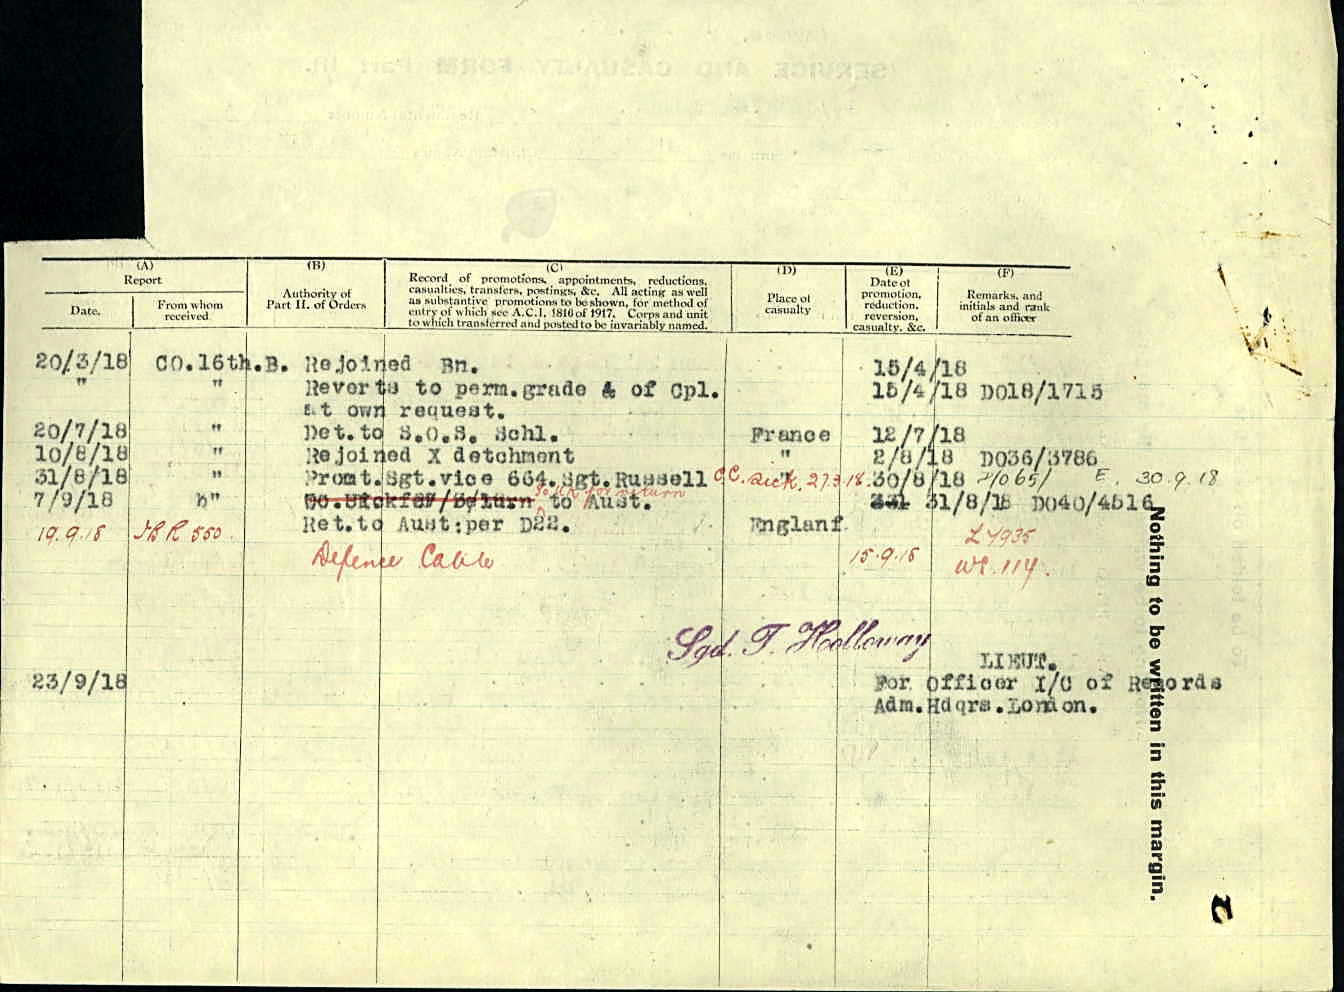 (A)
Report
(B)
Authority of
Part II. of Orders
(C)
Record of promotions, appointments, reductions,
casualties, transfers, postings, &c. All acting as well
as substantive promotions to be shown, for method of
entry of which see A.C.I. 1816 of 1917. Corps and unit
to which transferred and posted to be invariably named.
(D)
Place of
casualty
(E)
Date of
promotion,
reduction,
reversion,
casualty, &c.
(F)
Remarks, and
initials and rank
of an officer
Date.
From whom
received
20/3/18 CO.16th.B. Rejoined Bn. 15/4/18
" " Reverts to perm.grade & of Cpl. 15/4/18 DO18/1715
at own request.
20/7/18 " Det.to S.O.S. Schl. France 12/7/18
10/8/18 " Rejoined X detchment " 2/8/18 DO36/3786
31/8/18 " Promt.Sgt.vice 664.Sgt.Russell C.C. sick, 27.3.18. 30/8/18 E. 30.9.18
7/9/18 " to Aust. 31/8/18 DO40/4516
for return
Ret.to Aust:per D22. Englanf
19.9.18 550 L 4935
Defence Cable 15.9.18 114.
Sgd. T. Holloway
LIEUT.
23/9/18 For Officer I/C of Records
Adm.Hdqrs.London.
Nothing to be written in this margin.